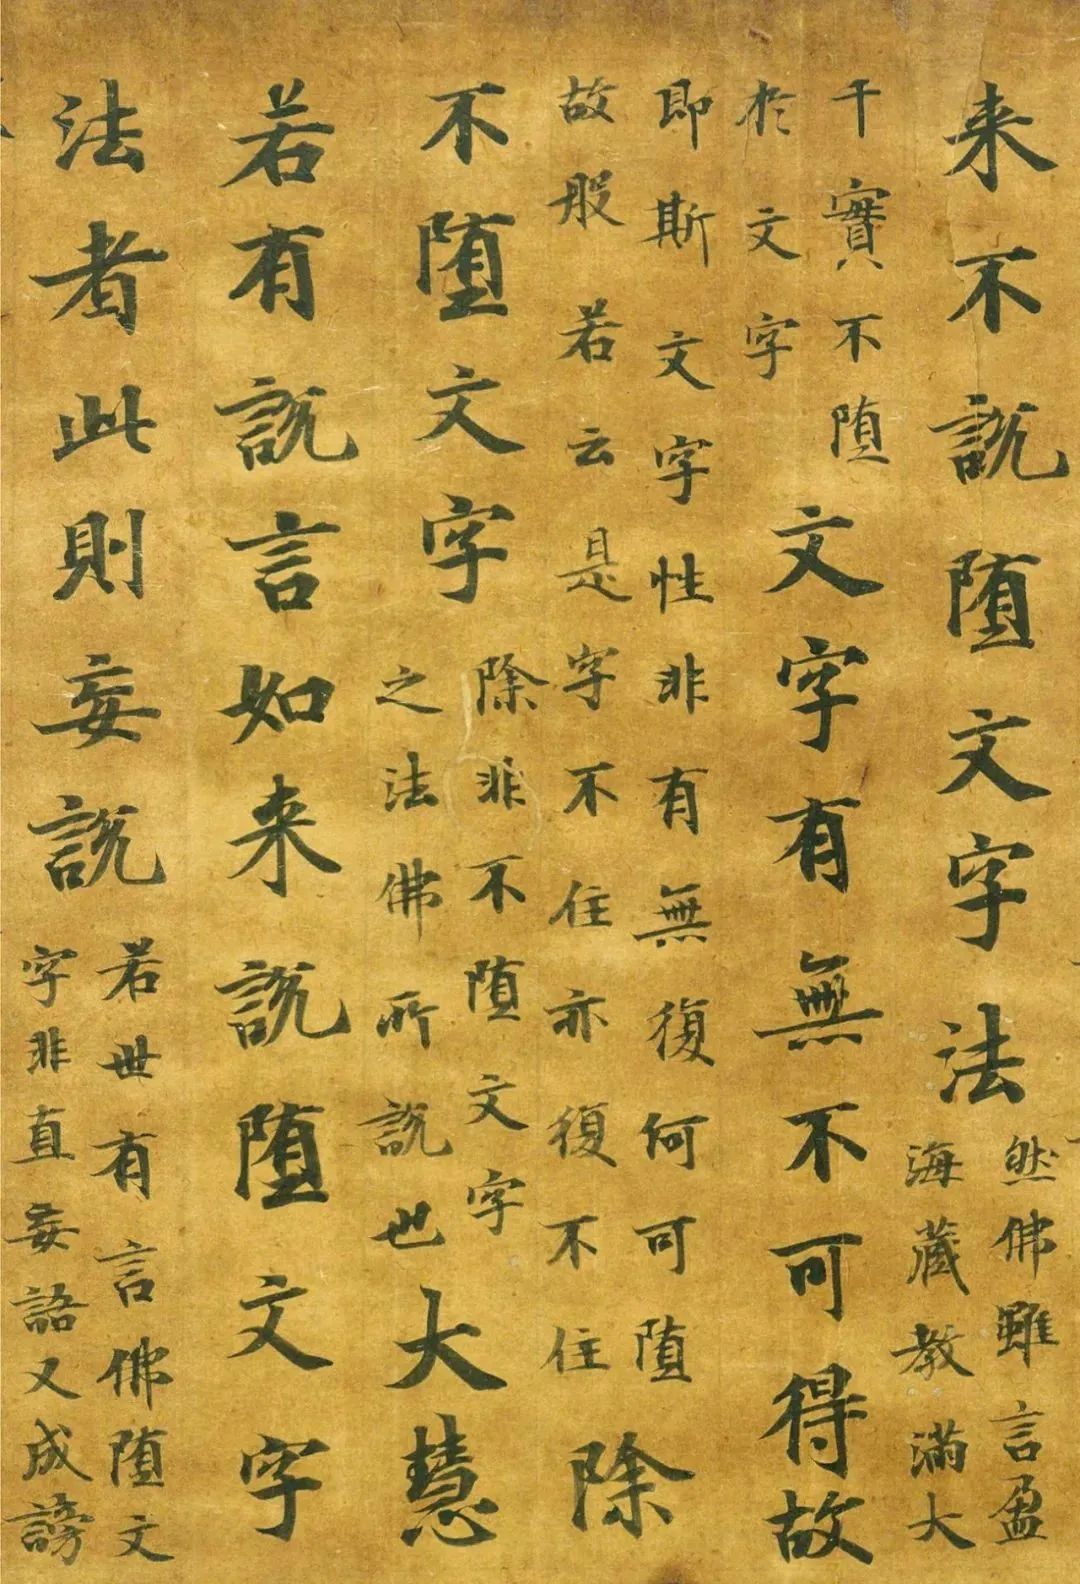 来不說堕文字法
然佛雖言盈
海藏教滿大
千實不堕
於文字
文字有無不可得故
即斯文字性非有無復何可堕
故般若云是字不住亦復不住
除
不堕文字
除非不堕文字
之法佛所說也
大慧
若有說言如来說堕文字
法者此則妄說
若世有言佛堕文
字非直妄語又成謗